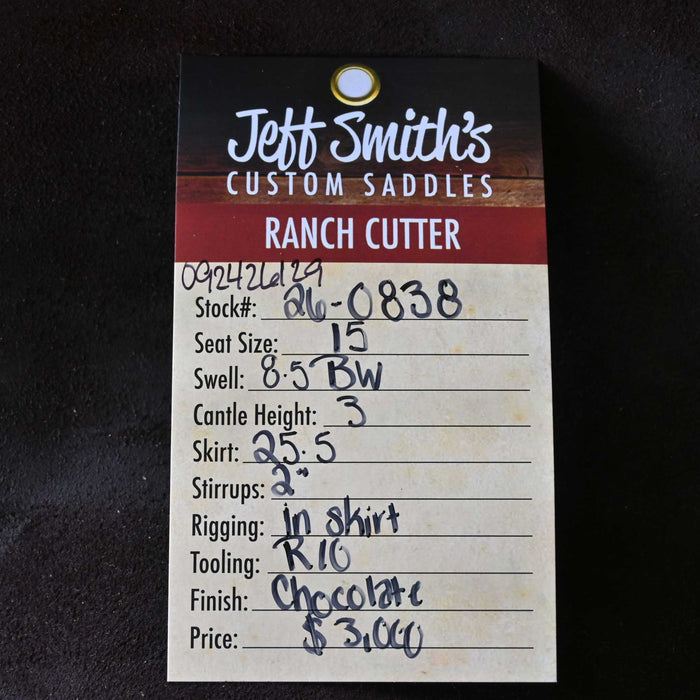 Jeff Smith's
CUSTOM SADDLES
RANCH CUTTER
Stock#: 26-0838
Seat Size: 15
Swell: 8.5 BW
Cantle Height: 3
Skirt: 25.5
Stirrups: 2"
Rigging: in skirt
Tooling: R10
Finish: Chocolate
Price: $3,000